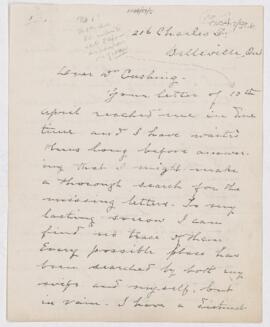 216 Charles St.
Belleville, Ont
Dear Dr Cushing.
Your letter of 10th
April reached me in due
time and I have waited
thus long before answer-
ing that I might make
a thorough search for the
missing letters. To my
lasting sorrow I can
find no trace of them.
Every possible place has
been searched by both my
wife and myself, but
in vain. I have a distinct